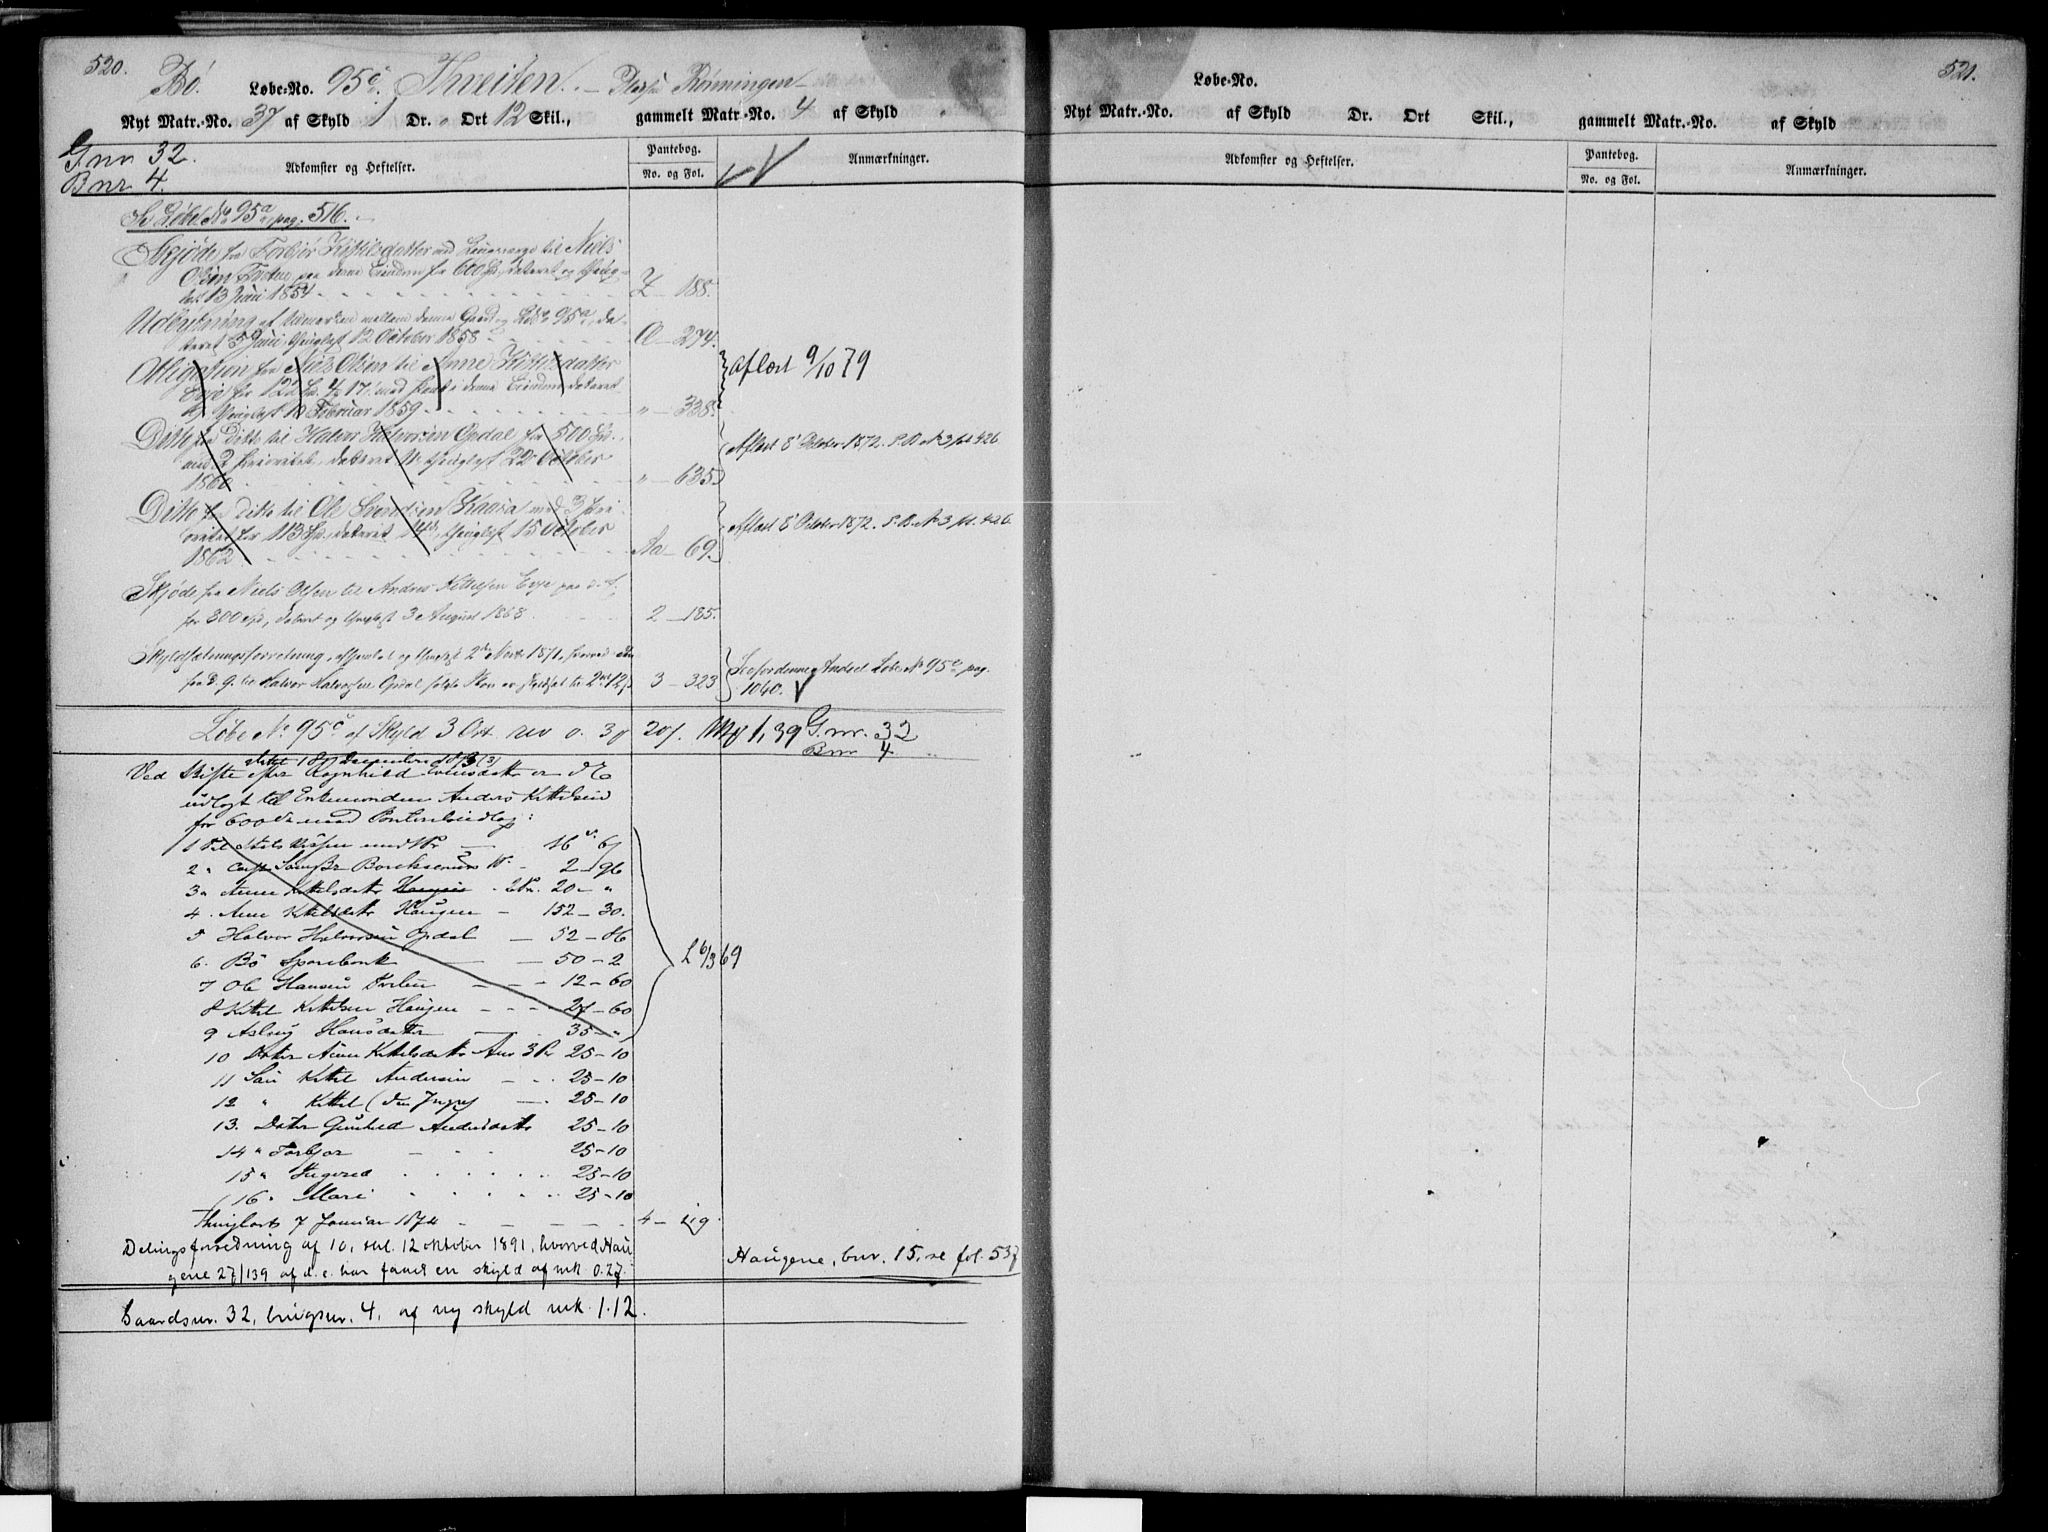 520.
Bö. Løbe-No. 95c Kveiten. – Pladsen Rønningen –
Nyt Matr.-No. 37 af Skyld 1 Dr. " Ort 12 Skil., gammelt Matr.-No. 4 af Skyld
Gnr 32.
Bnr 4.
Adkomster og Heftelser.
Pantebog.
No. og Fol.
Anmærkninger.
Se Løbe No 95a pag. 516.
Skjøde fra Torbjør Kittilsdatter med Laugværge til Niels
Olsen paa denne Eiendom for 600 Spd, dateret og thinglæst 13 Juni 1854 Z – 188.
Udskiftning af Udmarken mellem denne Gaard og LNo 95a, dateret 5 Juni, thinglæst 12 October 1858 Æ – 274.
Obligation fra Niels Olsen til Anne Kittilsdatter
Eeje for 121 Spd. 4 17, med Pant i denne Eiendom dateret
thinglæst 12 Februar 1859 " – 338.
Aflæst 9/10 79
Ditto fra Ditto til Halvor Halvorsen Opdal for 500 Spd.
med 2 Prioritet, dateret thinglæst 22 October
1860 " – 635.
Aflæst 8 October 1872. P.B. No 3 fol. 426
Ditto fra ditto til Ole Svendsen Kaasa med 3 Prioritet for 113 Spd., dateret 14de, thinglæst 15 October
1862 Aa – 69.
Aflæst 8 October 1872. P.B. No 3 fol. 426
Skjøde fra Niels Olsen til Anders Kittilsen Eeje paa d. E.
for 800 Spd, datert og thinglæst 3 August 1868 2 – 185.
Skyldsætningsforretning, afhjemlet og thinglæst 2den Marts 1871, hvorved den
fra d. G. til Halvor Halvorsen Opdal solgte Skov er skyldsat til 2 12 3 – 323
Løbe No 95e pag.
1040.
Løbe No 95c af Skyld 3 Ort rev 0. 3 20 Mk 1,39 Gnr. 32
Bnr 4
sluttet 18 December 1873
Ved Skifte efter Ragnhild er d. E.
udlagt til Enkemanden Anders Kittelsen
for 600 Spd mod Panteudlæg:
1 Til Niels med 1 Pr. – 16 – 6
2 " – 2 – 96
3 " Anne Kittelsdatter Haugen 2 Pr. 20 – "
4. Anne Kittelsdatter Haugen – 152 – 30.
5 Halvor Halvorsen Opdal – 52 – 86
6. Bö Sparebank – 50 – 2
7 Ole Hansen – 12 – 60
8 Kittel Kittelsen Haugen – 27 – 60
9 Aslaug Hansdatter – 35 – "
L 6/3 69
10 Datter Anne Kittelsdatter 3 Pr 25 – 10
11 Søn Kittel Andersen – 25 – 10
12 " Kittel (den Yngre) – 25 – 10
13. Datter Gunhild Andersdatter 25 – 10
14 " Torbjør – 25 – 10
15 " Ingered 25 – 10
16 " Mari 25 – 10
Thinglæst 7 Januar 1874 – 4 – 219.
Delingsforretning af 10, thl. 12 oktober 1891, hvorved Haugene 27/139 af d. e. har faaet en skyld af mk 0.27.
Haugene, bnr. 15, se fol. 537
Gaardsnr. 32, brugsnr. 4, af ny skyld mk. 1.12.
521.
Løbe-No.
Nyt Matr.-No. af Skyld Dr. Ort Skil., gammelt Matr.-No. af Skyld
Adkomster og Heftelser.
Pantebog.
No. og Fol.
Anmærkninger.